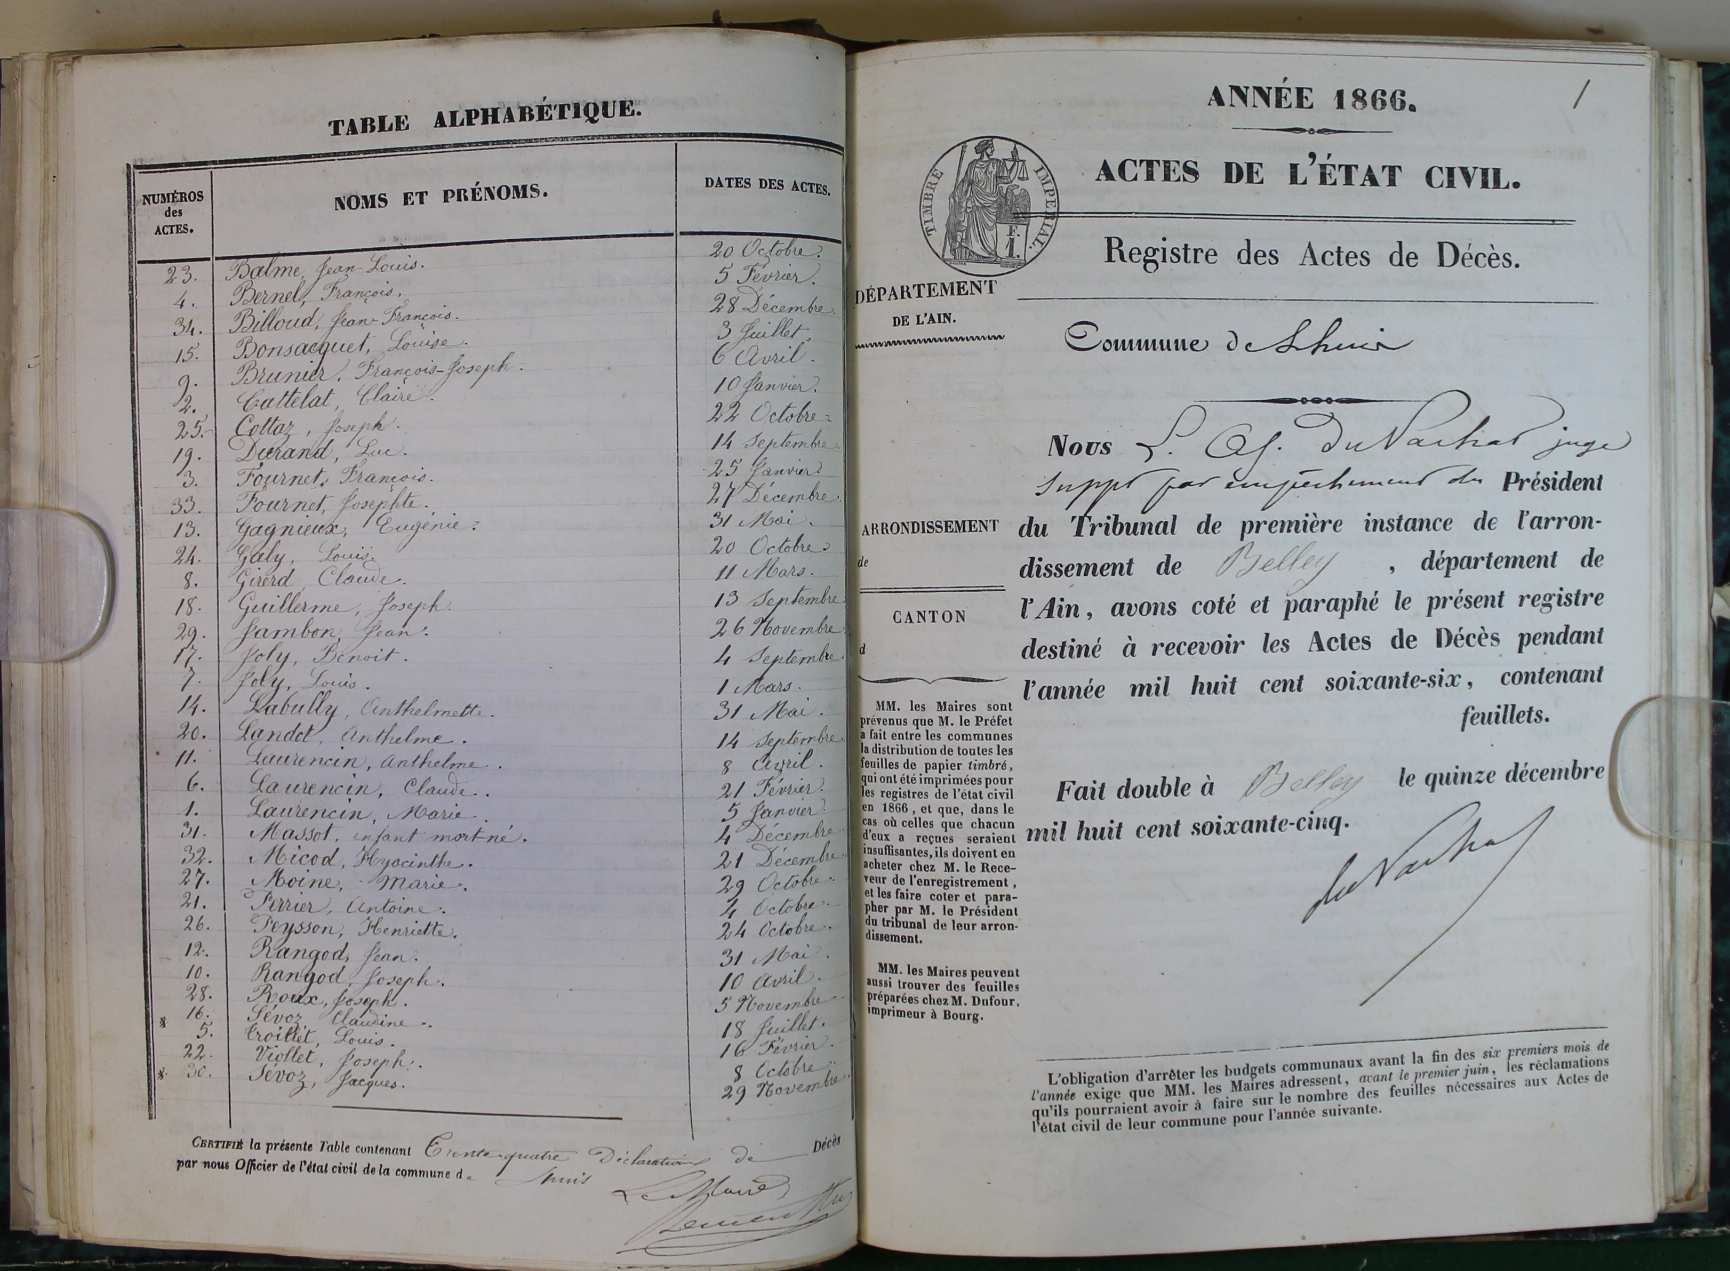 TABLE ALPHABÉTIQUE.
NUMÉROS des ACTES. NOMS ET PRÉNOMS. DATES DES ACTES.
23. Balme, Jean-Louis. 20 Octobre.
4. Bernel, François. 5 Février.
34. Billoud, Jean-François. 28 Décembre.
15. Bonsacquet, Louise. 3 Juillet.
9. Brunier, François-Joseph. 6 Avril.
2. Cattelat, Claire. 10 Janvier.
25. Cottaz, Joseph. 22 Octobre.
19. Durand, Luc. 14 Septembre.
3. Fournet, François. 25 Janvier.
33. Fournet, Josephte. 27 Décembre.
13. Gagnieux, Eugénie. 31 Mai.
24. Galy, Louis. 20 Octobre.
8. Girerd, Claude. 11 Mars.
18. Guillerme, Joseph. 13 Septembre.
29. Jambon, Jean. 26 Novembre.
17. Joly, Benoit. 4 Septembre.
7. Joly, Louis. 1 Mars.
14. Labully, Anthelmette. 31 Mai.
20. Landot, Anthelme. 14 Septembre.
11. Laurencin, Anthelme. 8 Avril.
6. Laurencin, Claude. 21 Février.
1. Laurencin, Marie. 5 Janvier.
31. Massot, enfant mort-né. 4 Décembre.
32. Micod, Hyacinthe. 21 Décembre.
27. Moine, Marie. 29 Octobre.
21. Perrier, Antoine. 4 Octobre.
26. Peysson, Henriette. 24 Octobre.
12. Rangod, Jean. 31 Mai.
10. Rangod, Joseph. 10 Avril.
28. Roux, Joseph. 5 Novembre.
16. Sévoz, Claudine. 18 Juillet.
5. Troillet, Louis. 16 Février.
22. Viollet, Joseph. 8 Octobre.
30. Sévoz, Jacques. 29 Novembre.
CERTIFIÉ la présente Table contenant Trente-quatre Déclarations de Décès
par nous Officier de l'état civil de la commune d
Le Maire
1
ANNÉE 1866.
ACTES DE L'ÉTAT CIVIL.
TIMBRE IMPÉRIAL.
F.
1.
Registre des Actes de Décès.
DÉPARTEMENT
DE L'AIN.
Commune de Lhuis
ARRONDISSEMENT
de
CANTON
d
MM. les Maires sont
prévenus que M. le Préfet
a fait entre les communes
la distribution de toutes les
feuilles de papier timbré,
qui ont été imprimées pour
les registres de l'état civil
en 1866, et que, dans le
cas où celles que chacun
d'eux a reçues seraient
insuffisantes, ils doivent en
acheter chez M. le Rece-
veur de l'enregistrement,
et les faire coter et para-
pher par M. le Président
du tribunal de leur arron-
dissement.
MM. les Maires peuvent
aussi trouver des feuilles
préparées chez M. Dufour,
imprimeur à Bourg.
Nous juge
suppt par empêchement du Président
du Tribunal de première instance de l'arron-
dissement de Belley, département de
l'Ain, avons coté et paraphé le présent registre
destiné à recevoir les Actes de Décès pendant
l'année mil huit cent soixante-six, contenant
feuillets.
Fait double à Belley le quinze décembre
mil huit cent soixante-cinq.
L'obligation d'arrêter les budgets communaux avant la fin des six premiers mois de
l'année exige que MM. les Maires adressent, avant le premier juin, les réclamations
qu'ils pourraient avoir à faire sur le nombre des feuilles nécessaires aux Actes de
l'état civil de leur commune pour l'année suivante.